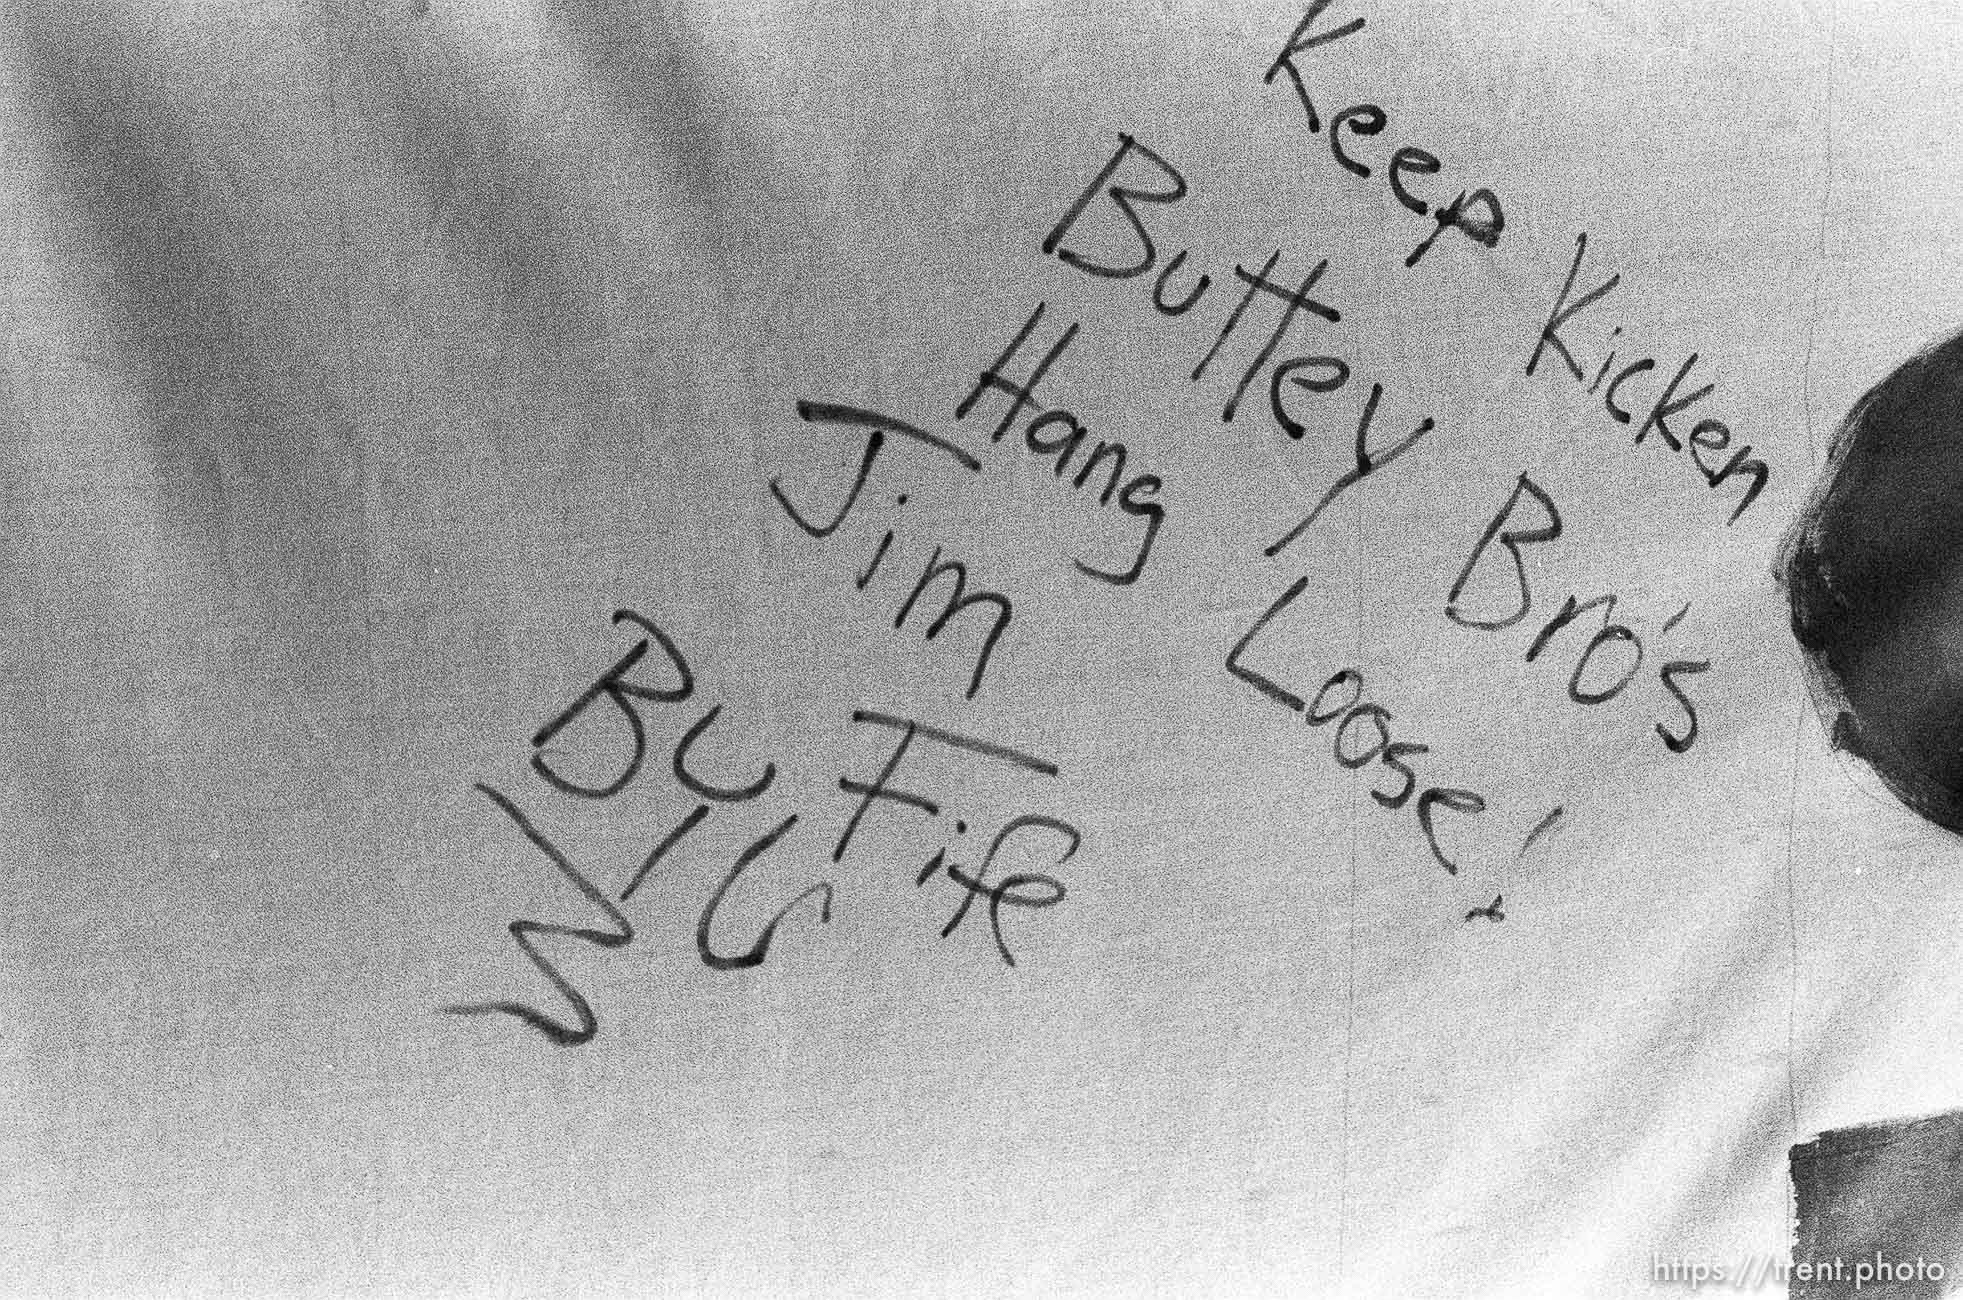 Keep Kicken
Buttey Bro's
Hang Loose!
Jim Fife
https://trent.photo